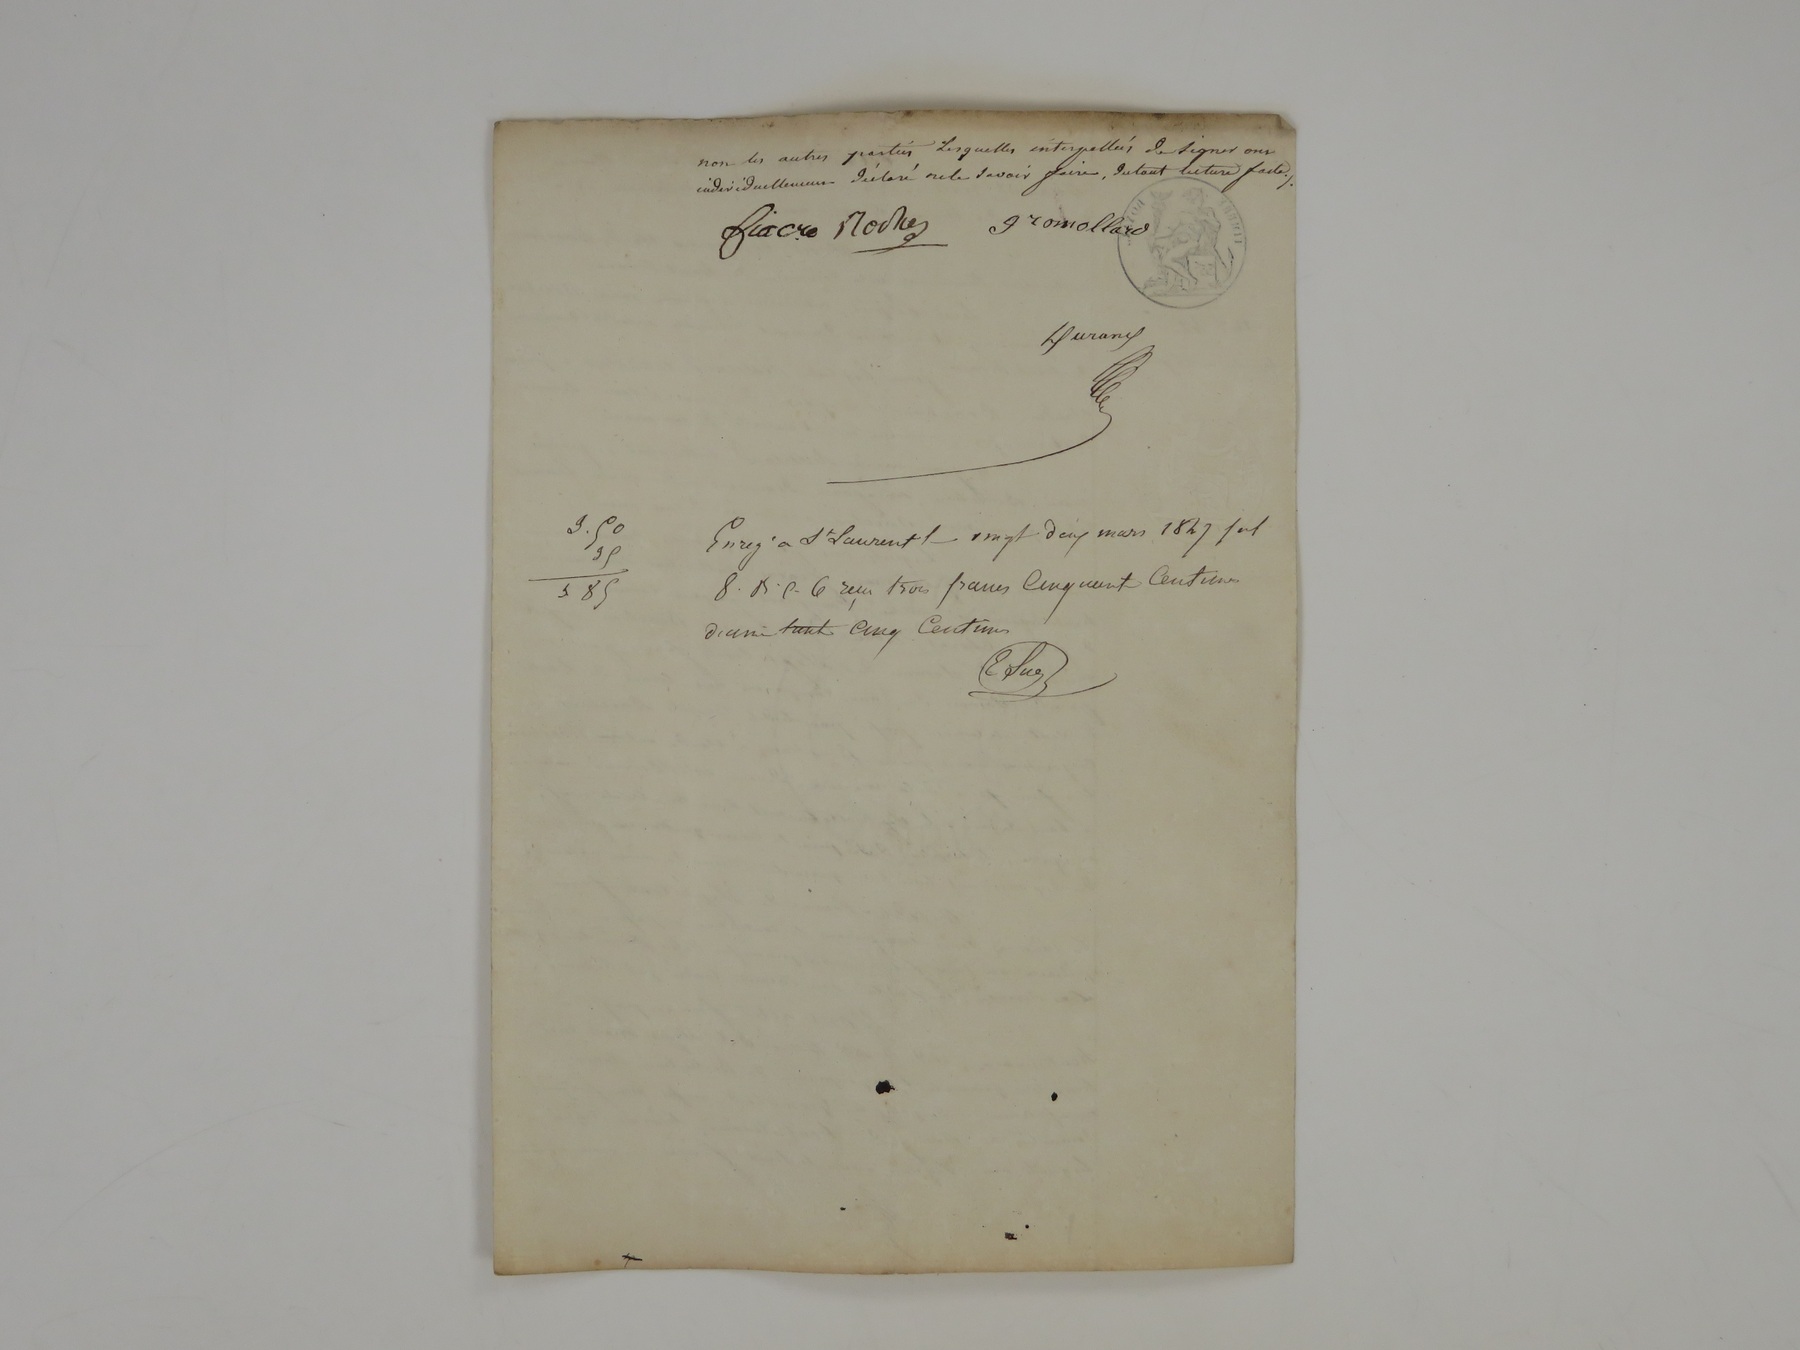 non les autres parties Lesquelles interpellées de Signer ont
individuellement déclaré ne le Savoir faire, du tout lecture faite./.
fiacre Roche gromollard
Durand
3.50
35
3 85
Enreg. a St Laurent le vingt deux mars 1847 fol
8. R. c. 6 reçu trois francs Cinquante Centimes
decime tente Cinq Centimes